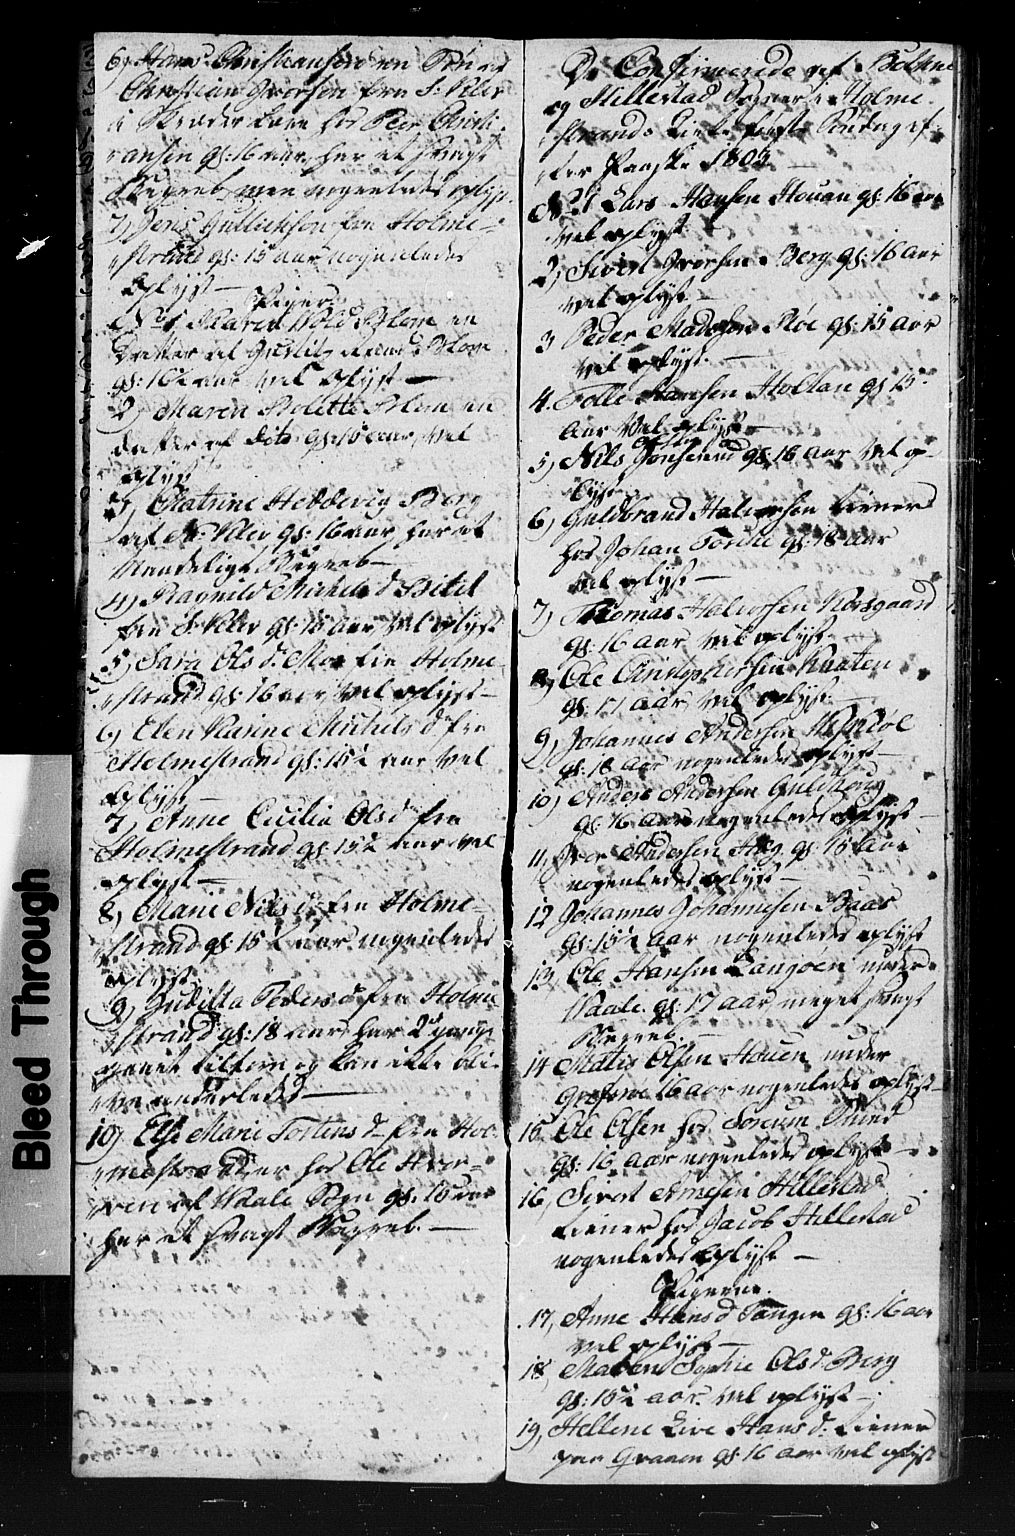 6) Hans Christiansen en Søn af
Christian Iversen fra S: Kler
i Skræder Lære hos Peer Christi-
ansen gl: 16 aar, har et svagt
Begreb, men nogenledes oplyst
7) Jens Gulliksen fra Holme-
strand gl: 15 aar nogenledes
oplyst —
Piger
No 1, Maren Wold Blom en
Datter af Blom
gl: 16½ aar vel oplyst —
2) Maren Bolette Blom en
datter af dito gl: 15 aar, vel
oplyst
3) Chatrine Heddevig Berg
af N: Kler gl: 16 aar, har et
Maadeligt Begreb —
4) Ragnild Michels d
fra S: Kler gl: 15 aar vel oplyst
5) Sara Ols d. Moe fra Holme-
strand gl: 16 aar, vel oplyst —
6) Elen Karine Michels d. fra
Holmestrand gl: 15½ aar vel
oplyst —
7) Anne Cecilia Ols d fra
Holmestrand gl: 15½ aar vel
oplyst —
8) Marie Nils d. fra Holme-
strand gl: 15½ aar, nogenledes
oplyst
9) Juditta Peders d fra Holme-
strand gl: 18 aar, har 2 gange
gaaet tilforn og kan ikke bli-
ve anderledes —
10) Else Marie Tostens d fra Hol-
mestr. tiener hos Ole
af Waale Sogn gl: 16 aar
har et svagt Begreb —
De Confirmerede af Bothne
og Hillestad Sogner i Holme-
strands Kirke første Søndag ef-
ter Paaske 1803
No 1 Lars Hansen Houan gl: 16 aar
vel oplyst
2) Siver Iversen Berg gl: 16 aar
vel oplyst —
3 Peder Madsen Røe gl: 15 aar
vel oplyst. —
4. Tolle Hansen Holtan gl 15
aar vel oplyst —
5) Nils gl: 16 aar vel op-
lyst —
6) Guldbrand Halvorsen tiener
hos Johan gl: 18 aar
vel oplyst —
7) Thomas Halvorsen Korsgaard
gl: 16 aar vel oplyst
8, Ole Christophersen Knatten
gl: 17 aar, vel oplyst —
9) Johannes Andersen
gl: 16 aar nogenledes oplyst —
10) Anders Andersen Guldhoug
gl: 16 aar nogenledes oplyst —
11, Iver Andersen Aag gl: 15 aar
nogenledes oplyst —
12 Johannes Johannesen Baas
gl: 15½ aar nogenledes oplyst
13, Ole Hansen Langøen under
Waale gl: 17 aar meget svagt
Begreb —
14 Matis Olsen Houen under
16 aar nogenledes oplyst —
15 Ole Olsen hos
gl: 16 aar nogenledes oplyst —
16, Sivert Arnesen Hillestad
tiener hos Jacob Hillestad
nogenledes oplyst —
Pigerne.
17, Anne Hans d Tangen gl: 16 aar
vel oplyst —
18, Maren Sophie Ols d. Berg
gl: 15½ aar. vel oplyst —
19, Hellene Live Hans d. tiener
paa Graaen gl: 16 aar vel oplyst
Bleed Through